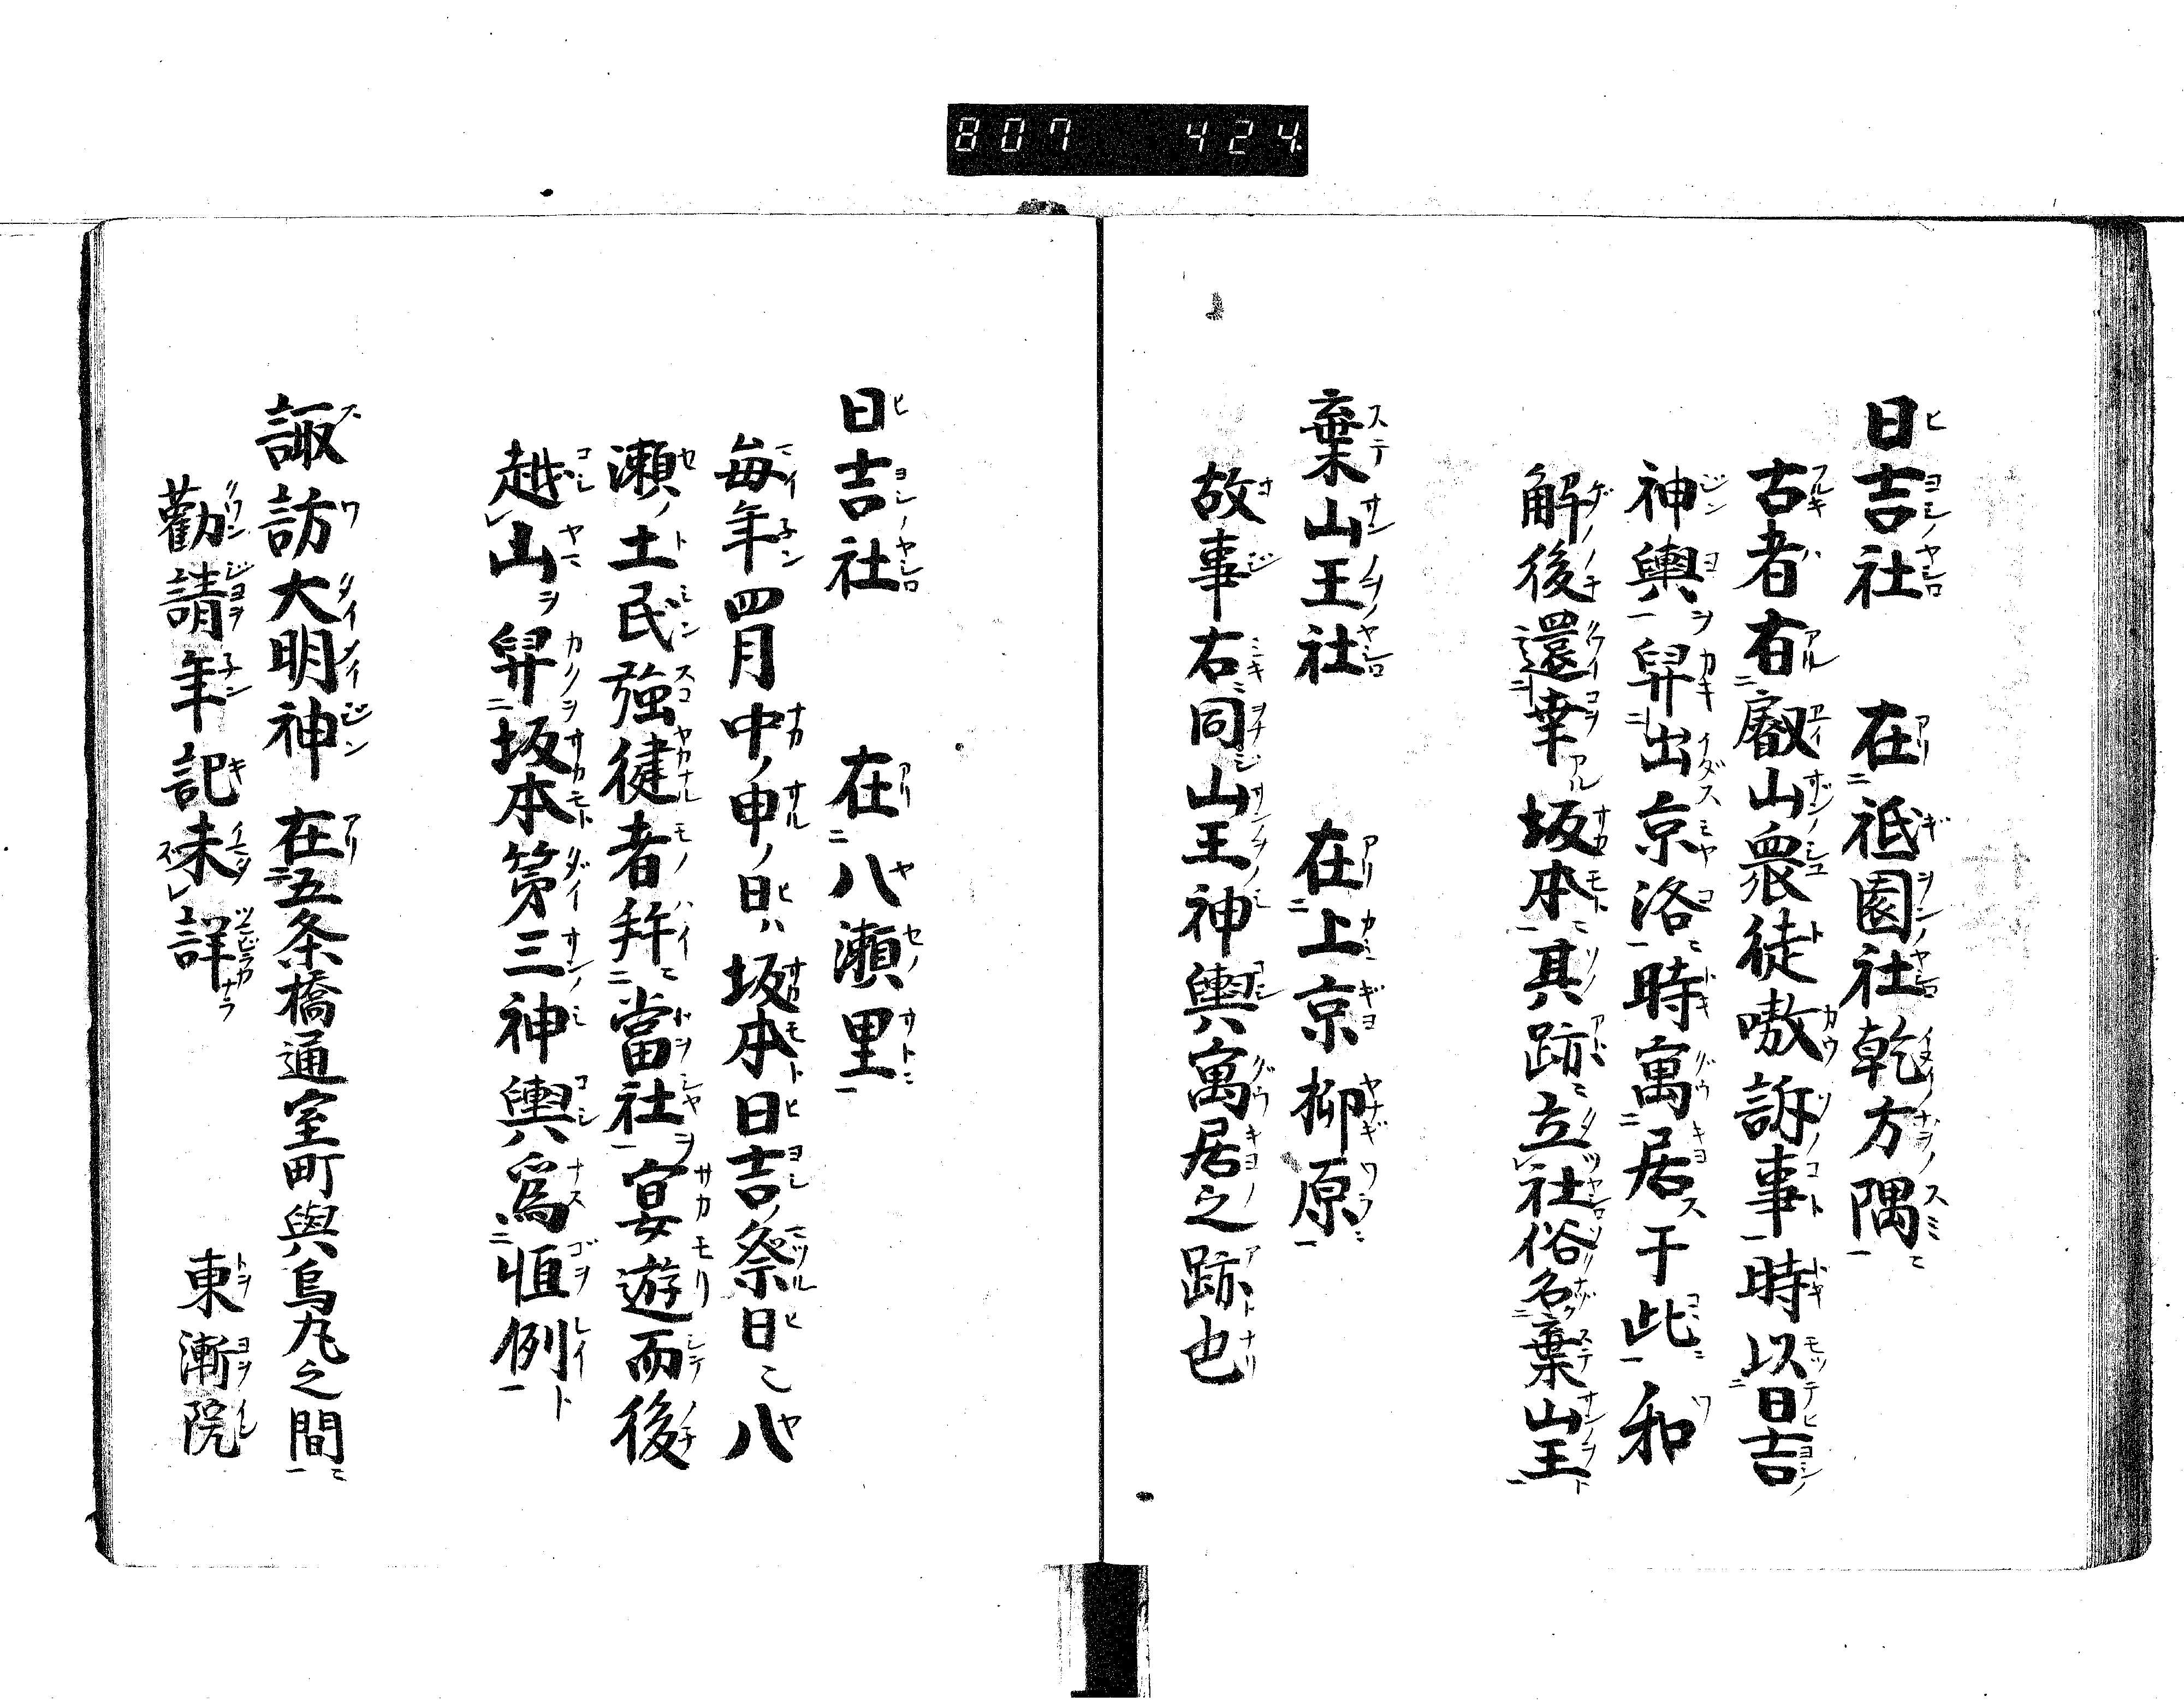 807 424
日吉社 在祗園社乾方隅
古者有叡山衆徒嗷訴事時以日吉
神輿舁出京洛時寓居于此和
解後還幸坂本其跡立社俗名棄山王
棄山王社 在上京柳原
故事右同山王神輿寓居之跡也
日吉社 在八瀬里
毎年四月中ノ申ノ日ハ坂本日吉ノ祭日ニ八
瀬ノ土民強健者拜當社宴遊而後
越山舁坂本第三神輿爲恒例
諏訪大明神 在五条橋通室町與烏丸之間
勸請年記未詳 東漸院